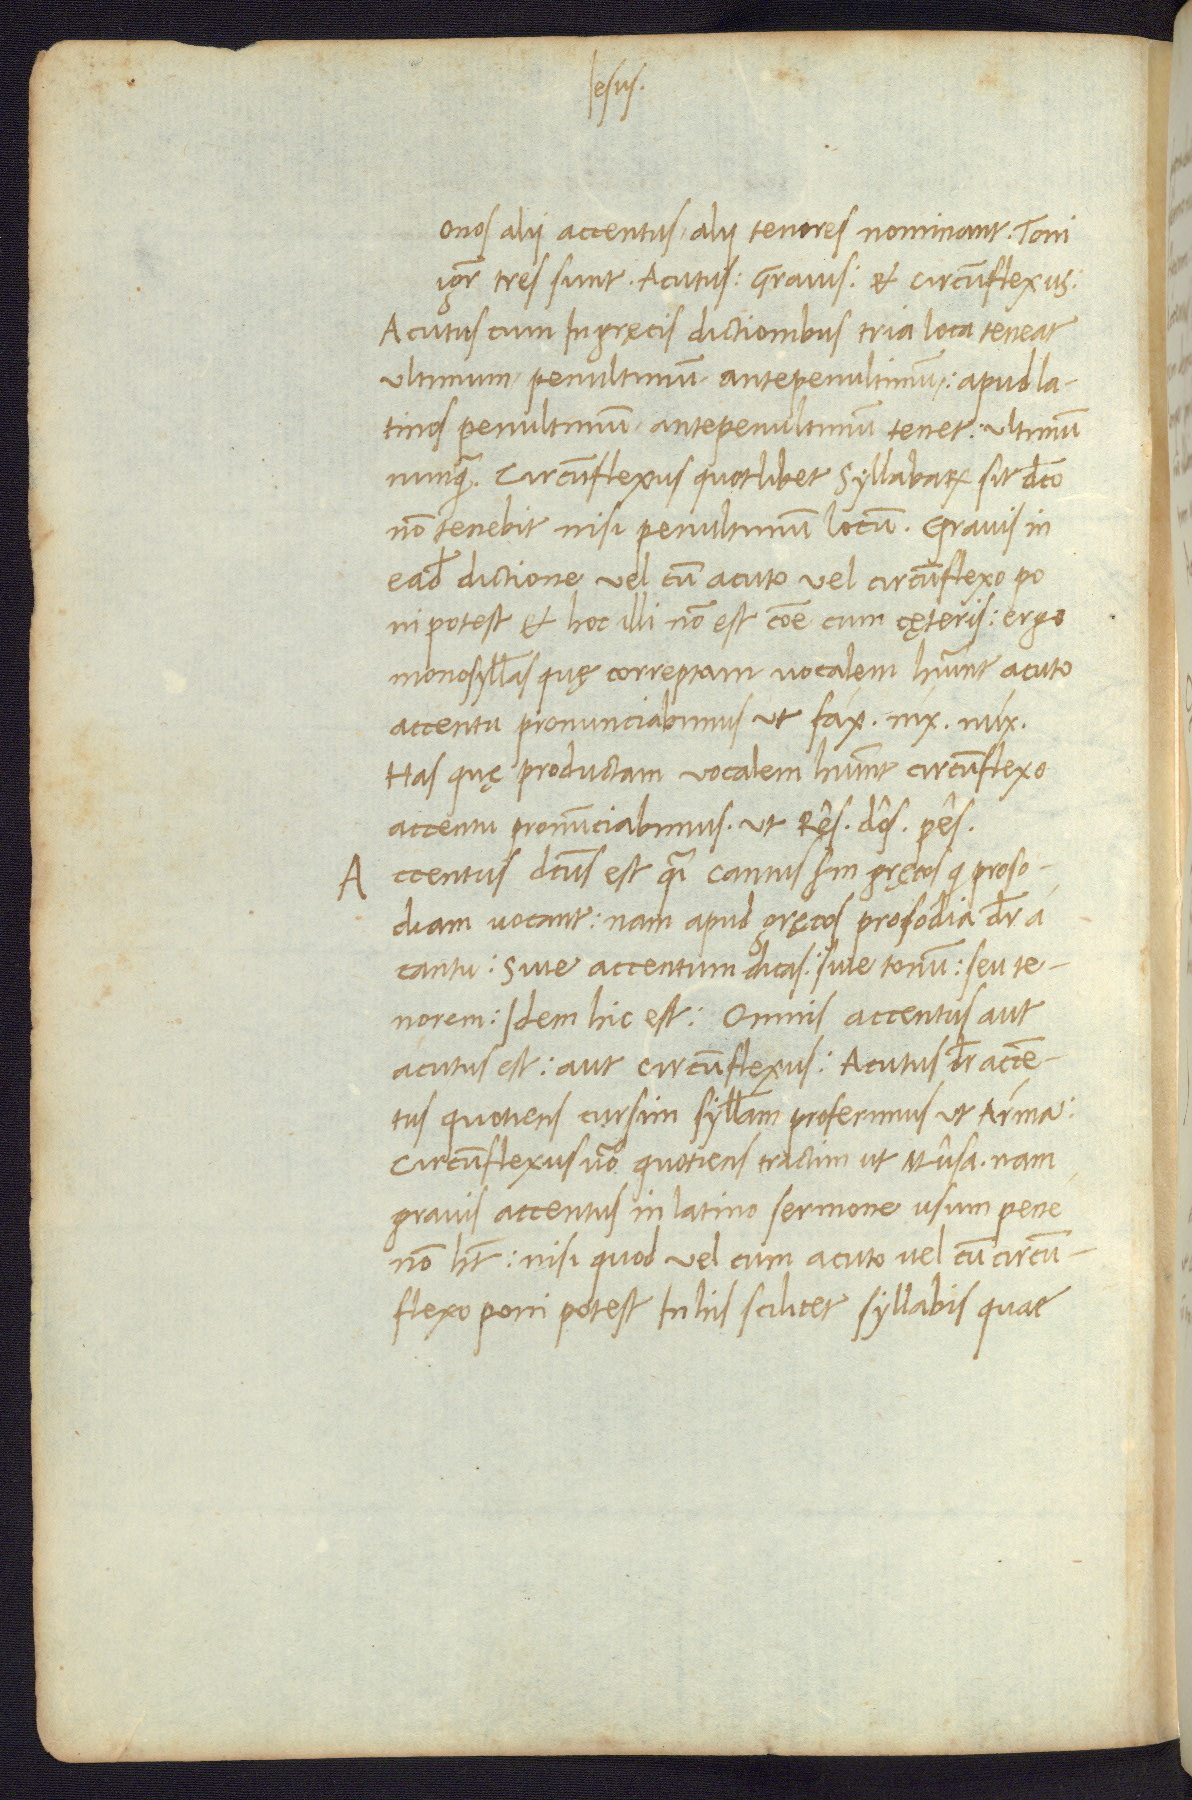 Iesus.
onos alij accentus, alij tenores nominant. Toni
igr̄ tres sunt. Acutus: Grauis: & circūflexus:
Acutus cum In gręcis dictionibus tria loca teneat
vltimum, penultimū, antepenultimū: apud la-
tinos penultimū, antepenultimū tenet: vltimū
nunq̃. Circūflexus quotlibet syllabaꝝ sit dc̄o
nō tenebit nisi penultimū locū. Grauis in
ead̄ dictione vel cū acuto vel circūflexo po
ni potest & hoc illi nō est cōe cum cęteris: ergo
monosyll̄as quę correptam uocalem hūnt acuto
accentu pronunciabimus vt fáx. níx. núx.
Has quę productam vocalem hūnt circūflexo
accentu pronūciabimus. vt Rês. dôs. pês.
Accentus dc̄us est q̃i cantus sm̄ gręcos q̄ proso-
diam uocant: nam apud gręcos prosodia dr̄ á
cantu: Siue accentum dicas: siue tonū: seu te-
norem: Idem hic est: Omnis accentus aut
acutus est: aut circūflexus: Acutus dr̄ accē-
tus quotiens cursim syll̄am proferimus vt Árma:
Circūflexus ũo quotiens tractim ut Mûsa. nam
grauis accentus in latino sermone usum pene
nō ht̄: nisi quod vel cum acuto uel cū circū-
flexo poni potest In his scilicet syllabis quae